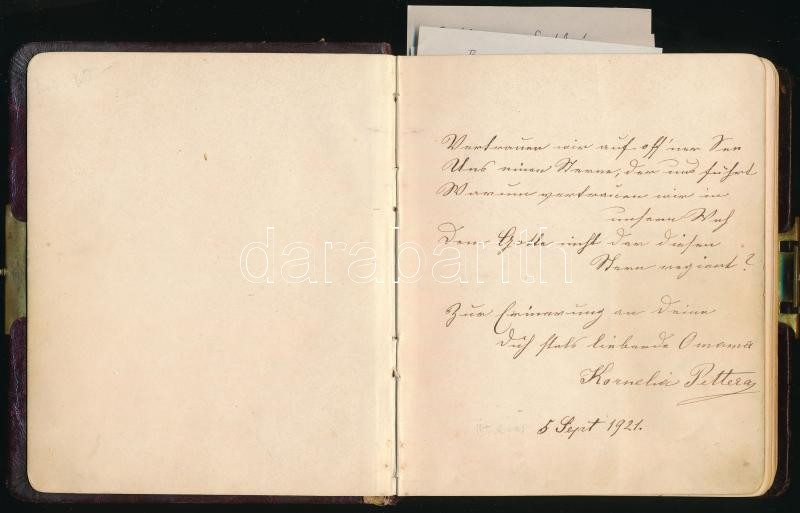 Vertrauen wir auf off'ner See
Uns einem Sterne, der uns führt
Warum vertrauen wir in
unserm Weh
Dem Gotte nicht der diesen
Stern regiert?
Zur Erinerung an deine
dich stets liebende Omama
Kornelia Pettera
5 Sept 1921.
darabanth